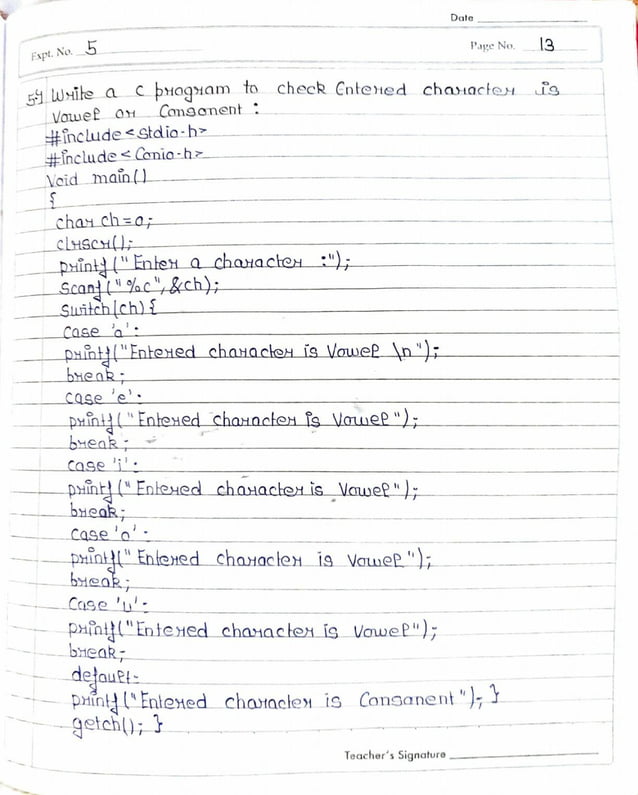 Date
Expt. No. 5
Page No. 13
5.1 Write a C program to check Entered character is
Vowel or Consonent :
#include<stdio.h>
#include<Conio.h>
Void main()
{
char ch=o;
clrscr();
printf("Enter a character :");
Scanf("%c",&ch);
Switch(ch){
Case 'a':
printf("Entered character is Vowel \n");
break;
case 'e':
printf("Entered character is Vowel");
break;
case 'i':
printf("Entered character is Vowel");
break;
case 'o':
printf("Entered character is Vowel");
break;
Case 'u':
printf("Entered character is Vowel");
break;
default:
printf("Entered character is Consanent"); }
getch(); }
Teacher's Signature